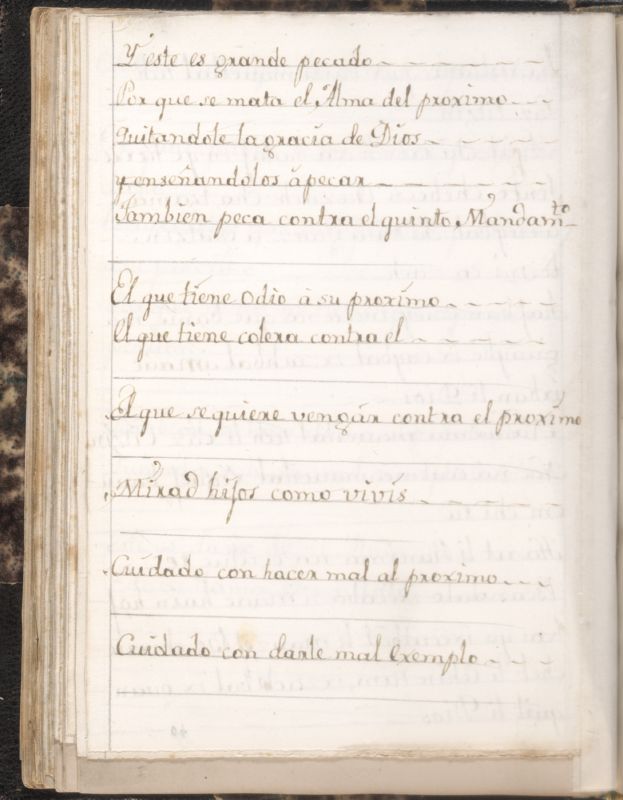 Y este es grande pecado
Por que se mata el Alma del proximo
Quitandole la gracia de Dios
y enseñandolos â pecar
Tambien peca contra el quinto Mandamto
El que tiene Odio â su proximo
El que tiene colera contra el
El que se quiere vengar contra el proximo
Mirad hijos como vivis
Cuidado con hacer mal al proximo
Cuidado con darle mal exemplo